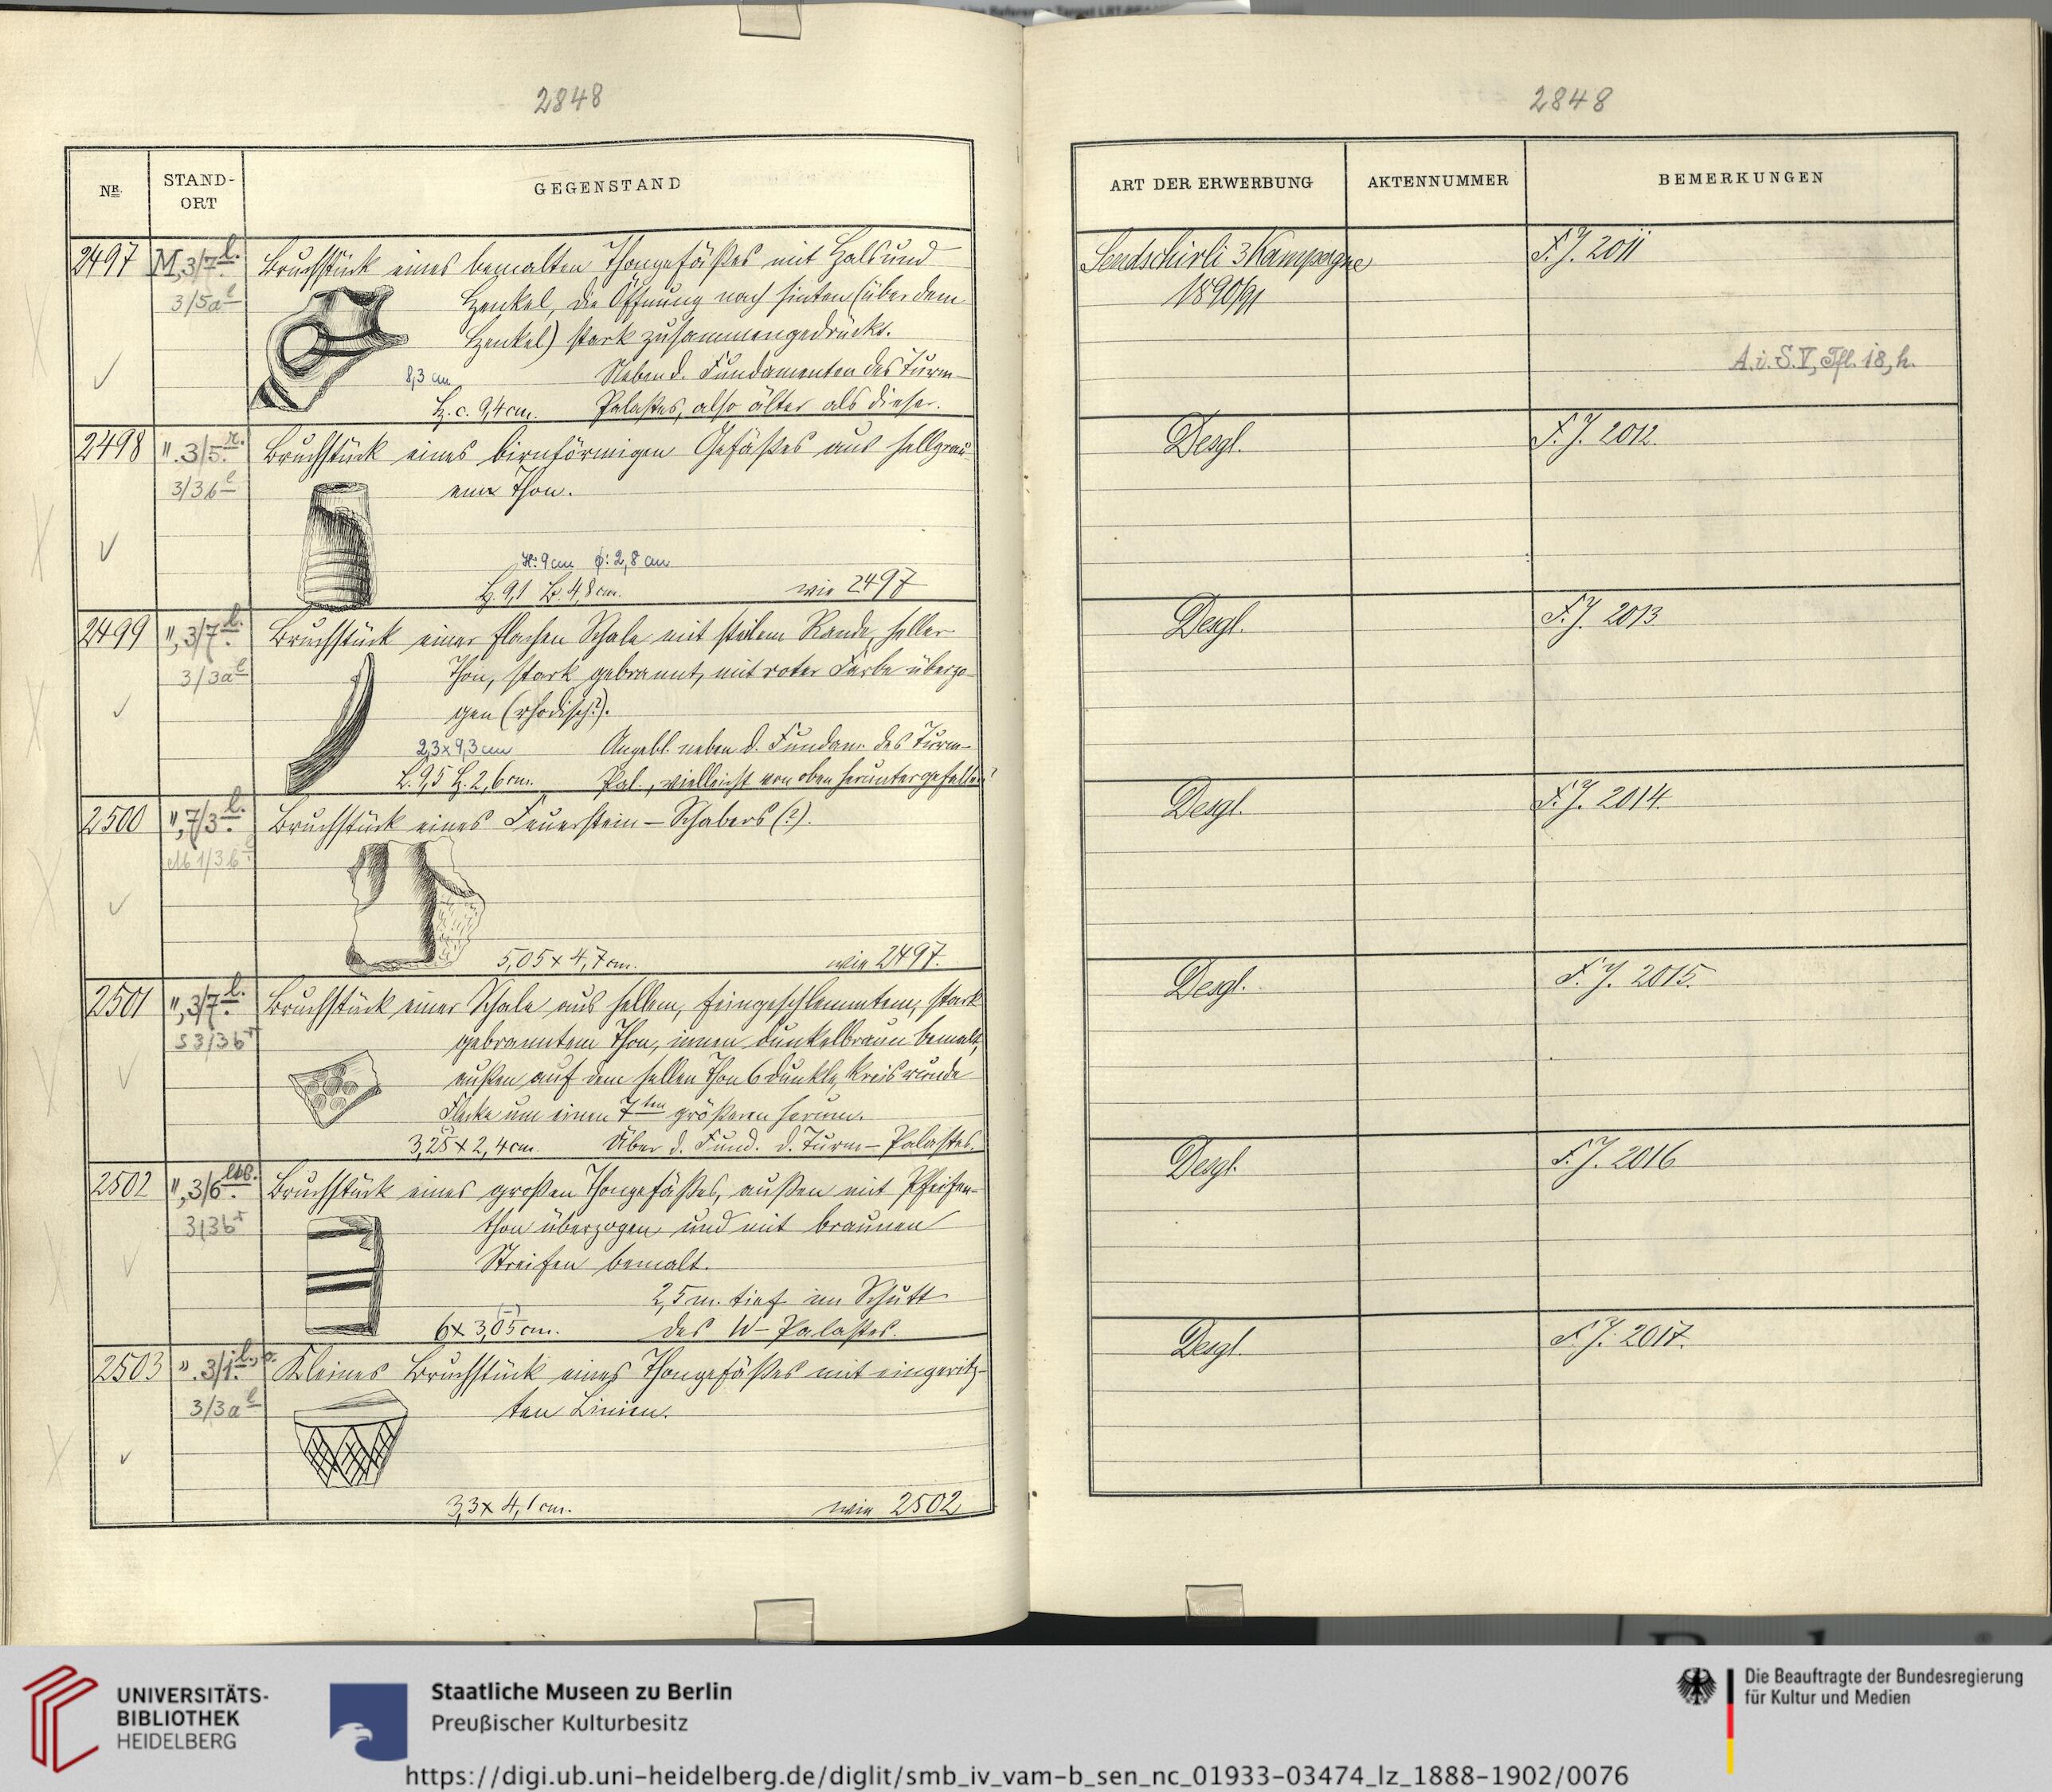 2848
Nr.
STAND-
ORT
GEGENSTAND
2497
M, 3/7 l.
3/5a l
Bruchstück eines bemalten Thongefäßes mit Hals und
Henkel, die Öffnung nach hinten (über dem
Henkel) stark zusammengedrückt.
8,3 cm
Neben d. Fundamenten des Turm-
H. c. 9,4 cm. Palastes, also älter als dieser.
2498
". 3/5 r.
3/3b l
Bruchstück eines birnförmigen Gefäßes aus hellgrau
em Thon.
H: 9 cm φ: 2,8 cm
H. 9,1 B. 4,8 cm. wie 2497
2499
", 3/7 l.
3/3a l
Bruchstück einer flachen Schale mit steilem Rande, heller
Thon, stark gebrannt, mit roter Farbe überzo-
gen (rhodisch?).
2,3 x 9,3 cm Angebl. neben d. Fundam. des Turm-
L. 9,5 H. 2,6 cm. Pal., vielleicht von oben heruntergefallen?
2500
", 7/3 l.
1/3b
Bruchstück eines Feuerstein-Schabers (?).
5,05 x 4,7 cm. wie 2497.
2501
", 3/7 l.
S 3/3b r
Bruchstück einer Schale aus hellem, feingeschlemmtem, stark
gebranntem Thon, innen dunkelbraun bemalt,
außen auf dem hellen Thon 6 dunkle, kreisrunde
Flecke um einen 7ten größeren herum.
3,25 x 2,4 cm. Über d. Fund. d. Turm-Palastes.
2502
", 3/6
3/3b r
Bruchstück eines großen Thongefäßes, außen mit Pfeifen-
thon überzogen und mit braunen
Streifen bemalt.
2,5 m. tief im Schutt
6 x 3,05 cm. des W-Palastes.
2503
". 3/1
3/3a l
Kleines Bruchstück eines Thongefäßes mit eingeritz-
ten Linien.
3,3 x 4,1 cm. wie 2502
2848
ART DER ERWERBUNG
AKTENNUMMER
BEMERKUNGEN
Sendschirli 3 Kampagne
1890/91
F. J. 2011
A. i. S. V, Tfl. 18, h.
Desgl.
F. J. 2012.
Desgl.
F. J. 2013
Desgl.
F. J. 2014.
Desgl.
F. J. 2015.
Desgl.
F. J. 2016
Desgl.
F. J. 2017.
UNIVERSITÄTS-
BIBLIOTHEK
HEIDELBERG
Staatliche Museen zu Berlin
Preußischer Kulturbesitz
Die Beauftragte der Bundesregierung
für Kultur und Medien
https://digi.ub.uni-heidelberg.de/diglit/smb_iv_vam-b_sen_nc_01933-03474_lz_1888-1902/0076